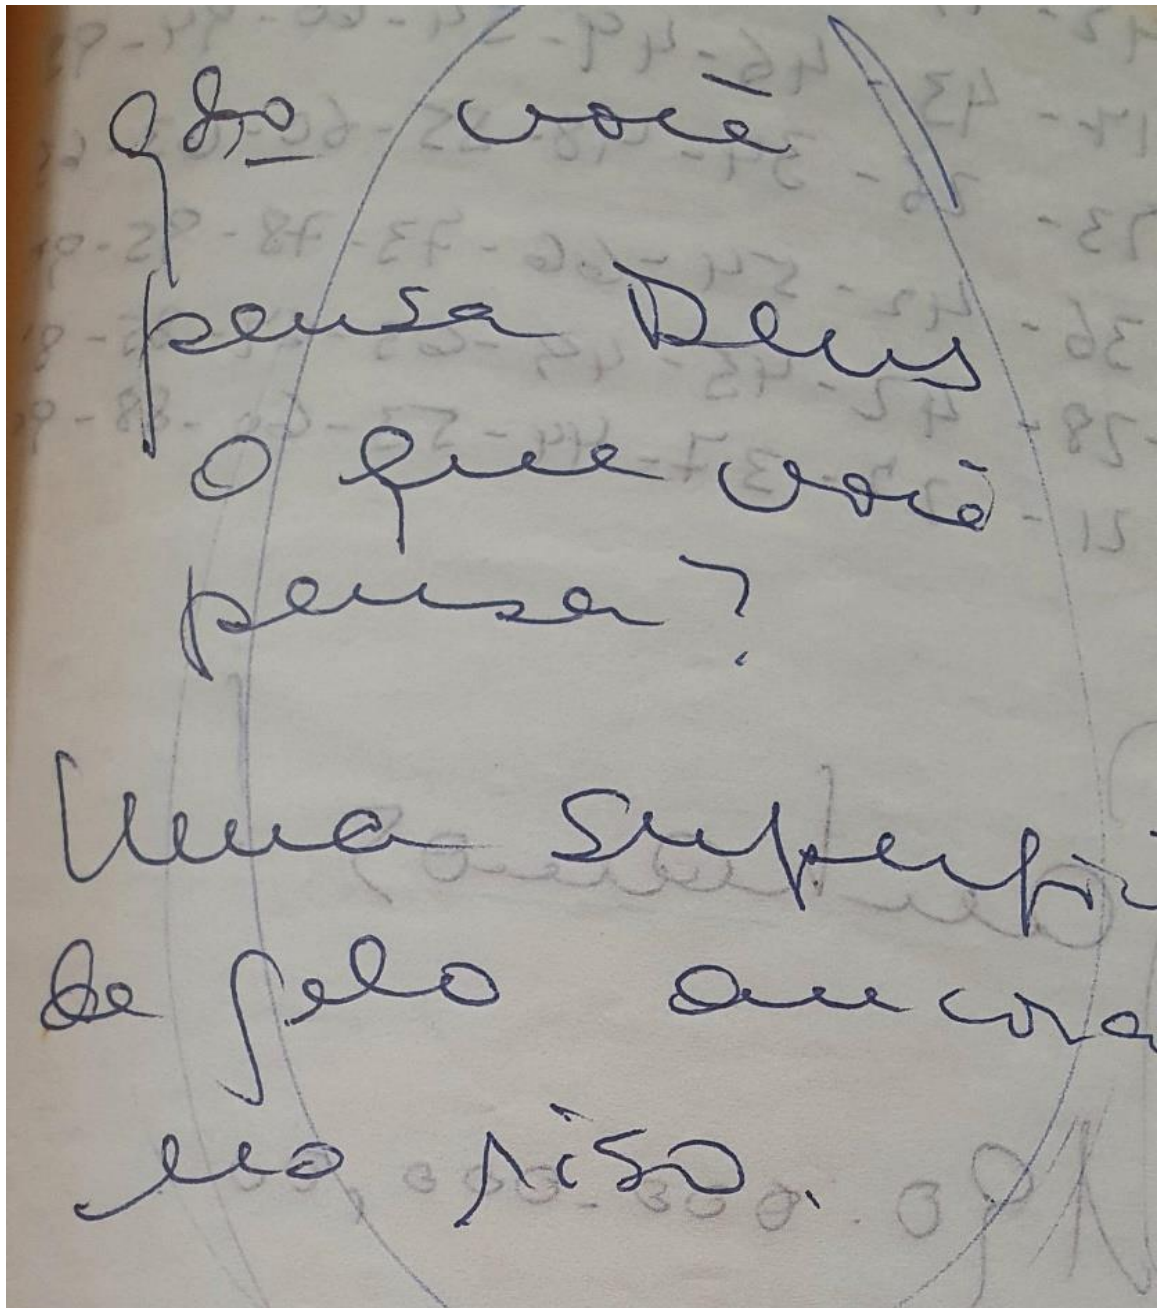 qdo você
pensa Deus
o que você
pensa?
Uma superfí
de gelo ancora
no riso.